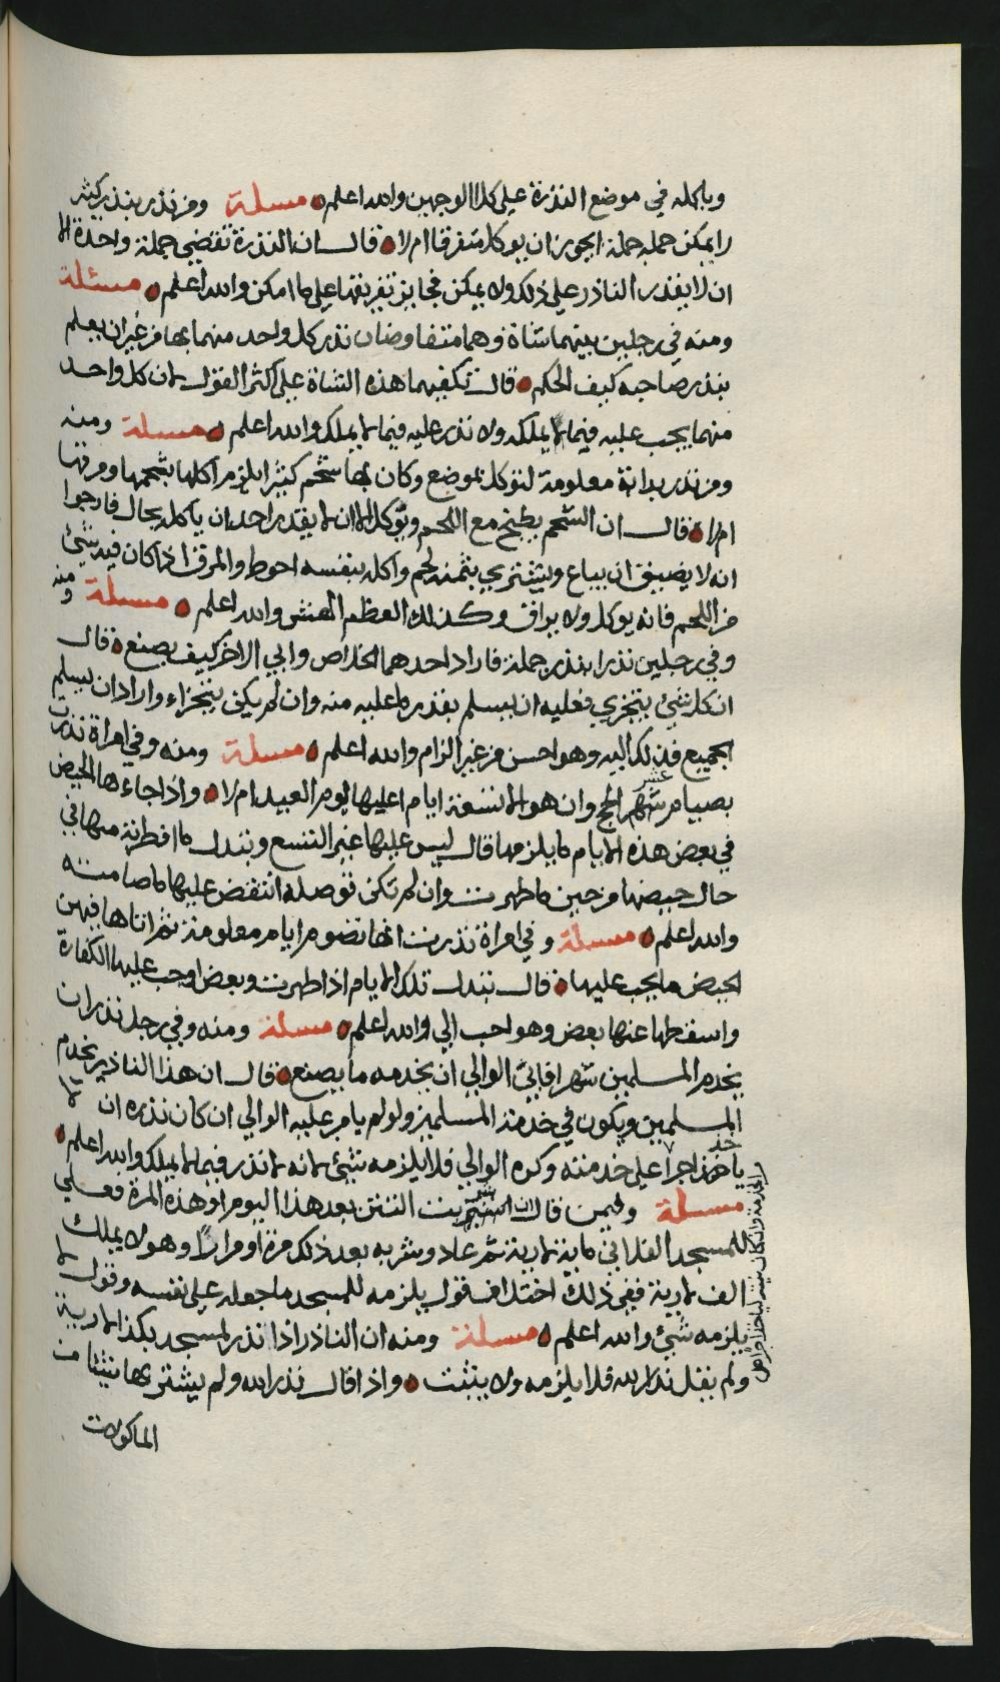 وياكله في موضع النذرة على كلا الوجهين والله اعلم مسلة ومن نذر بنذر كثير
لا يمكن حمله جملة ايجوز ان يوكل متفرقا ام لا قال ان النذرة تقضى جملة واحدة الا
ان لا يقدر الناذر على ذلك ولا يمكن فجايز تفريقها على ما امكن والله اعلم مسئلة
ومنه في رجلين بينهما شاة وهما متفاوضان نذر كل واحد منهما بها من غير ان يعلم
بنذر صاحبه كيف الحكم قال تكفيهما هذه الشاة على اكثر القول لان كل واحد
منهما يجب عليه فيما يملكه ولا نذر عليه فيما لا يملك والله اعلم مسلة ومنه
ومن نذر بدابة معلومة لتوكل بموضع وكان بها شحم كثير ايلزم اكلها بشحمها ومرقها
ام لا قال ان الشحم يطبخ مع اللحم ويوكل الا ان لا يقدر احد ان ياكله بحال فارجوا
انه لا يضيق ان يباع ويشترى بثمنه لحم واكله بنفسه احوط والمرق اذا كان فيه شئ
من اللحم فانه يوكل ولا يراق وكذلك العظم الهش والله اعلم مسلة ومنه
وفي رجلين نذرا بنذر جملة فاراد احدهما الخلاص وابى الاخر كيف يصنع قال
ان كل شئ يتجزى فعليه ان يسلم بقدر ما عليه منه وان لم يكن يتجزاء واراد ان يسلم
الجميع فذلك اليه وهو احسن من غير الزام والله اعلم مسلة ومنه وفي امراة نذرت
بصيام عشر شهر الحج وان هو الا تسعة ايام اعليها يوم العيد ام لا واذا جاءها الحيض
في بعض هذه الايام ما يلزمها قال ليس عليها غير التسع وتبدل ما افطرته منها في
حال حيضها من حين ما طهرت وان لم تكن توصله انتقض عليها ما صامته
والله اعلم مسلة وفي امراة نذرت انها تصوم ايام معلومة ثم اتاها فيهن
الحيض ما يجب عليها قال تبدل تلك الايام اذا طهرت وبعض اوجب عليها الكفارة
واسقطها عنها بعض وهو احب الي والله اعلم مسلة ومنه وفي رجل نذر ان
يخدم المسلمين شهرا فابى الوالي ان يخدمه ما يصنع قال ان هذا الناذر يخدم
المسلمين ويكون في خدمة المسلمين ولو لم يامر عليه الوالي ان كان نذره ان لا
ياخذ اجرا على خدمته وكره الوالي فلا يلزمه شئ لانه لا نذر فيما لا يملك والله اعلم
مسلة وفيمن قال ان شربت التتن بعد هذا اليوم او هذه المرة فعلي
للمسجد الفلاني ماية لارية ثم عاد وشربه بعد ذلك مرة او مرارا وهو لا يملك
الف لارية ففي ذلك اختلاف قول يلزمه للمسجد ما جعله على نفسه وقول لا
يلزمه شئ والله اعلم مسلة ومنه ان الناذر اذا نذر لمسجد بكذا لارية
ولم يقل نذر لله فلا يلزمه ولا يثبت واذا قال نذر لله ولم يشتر بها شيئا من
الماكولات